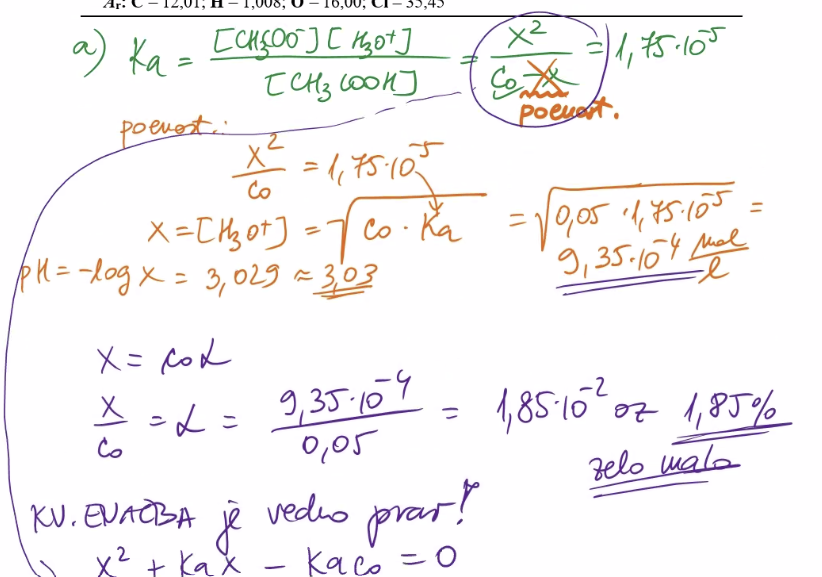 Ar: C – 12,01; H – 1,008; O – 16,00; Cl – 35,45
a) Ka = [CH3COO-][H3O+] / [CH3COOH] = x² / (co - x) = 1,75·10^-5
poenost.
poenost.:
x² / co = 1,75·10^-5
x = [H3O+] = √(co · Ka) = √(0,05 · 1,75·10^-5) =
9,35·10^-4 mol/l
pH = -log x = 3,029 ≈ 3,03
x = co α
x / co = α = 9,35·10^-4 / 0,05 = 1,85·10^-2 oz 1,85%
zelo mala
KV. ENAČBA je vedno prav!
x² + Ka x - Ka co = 0